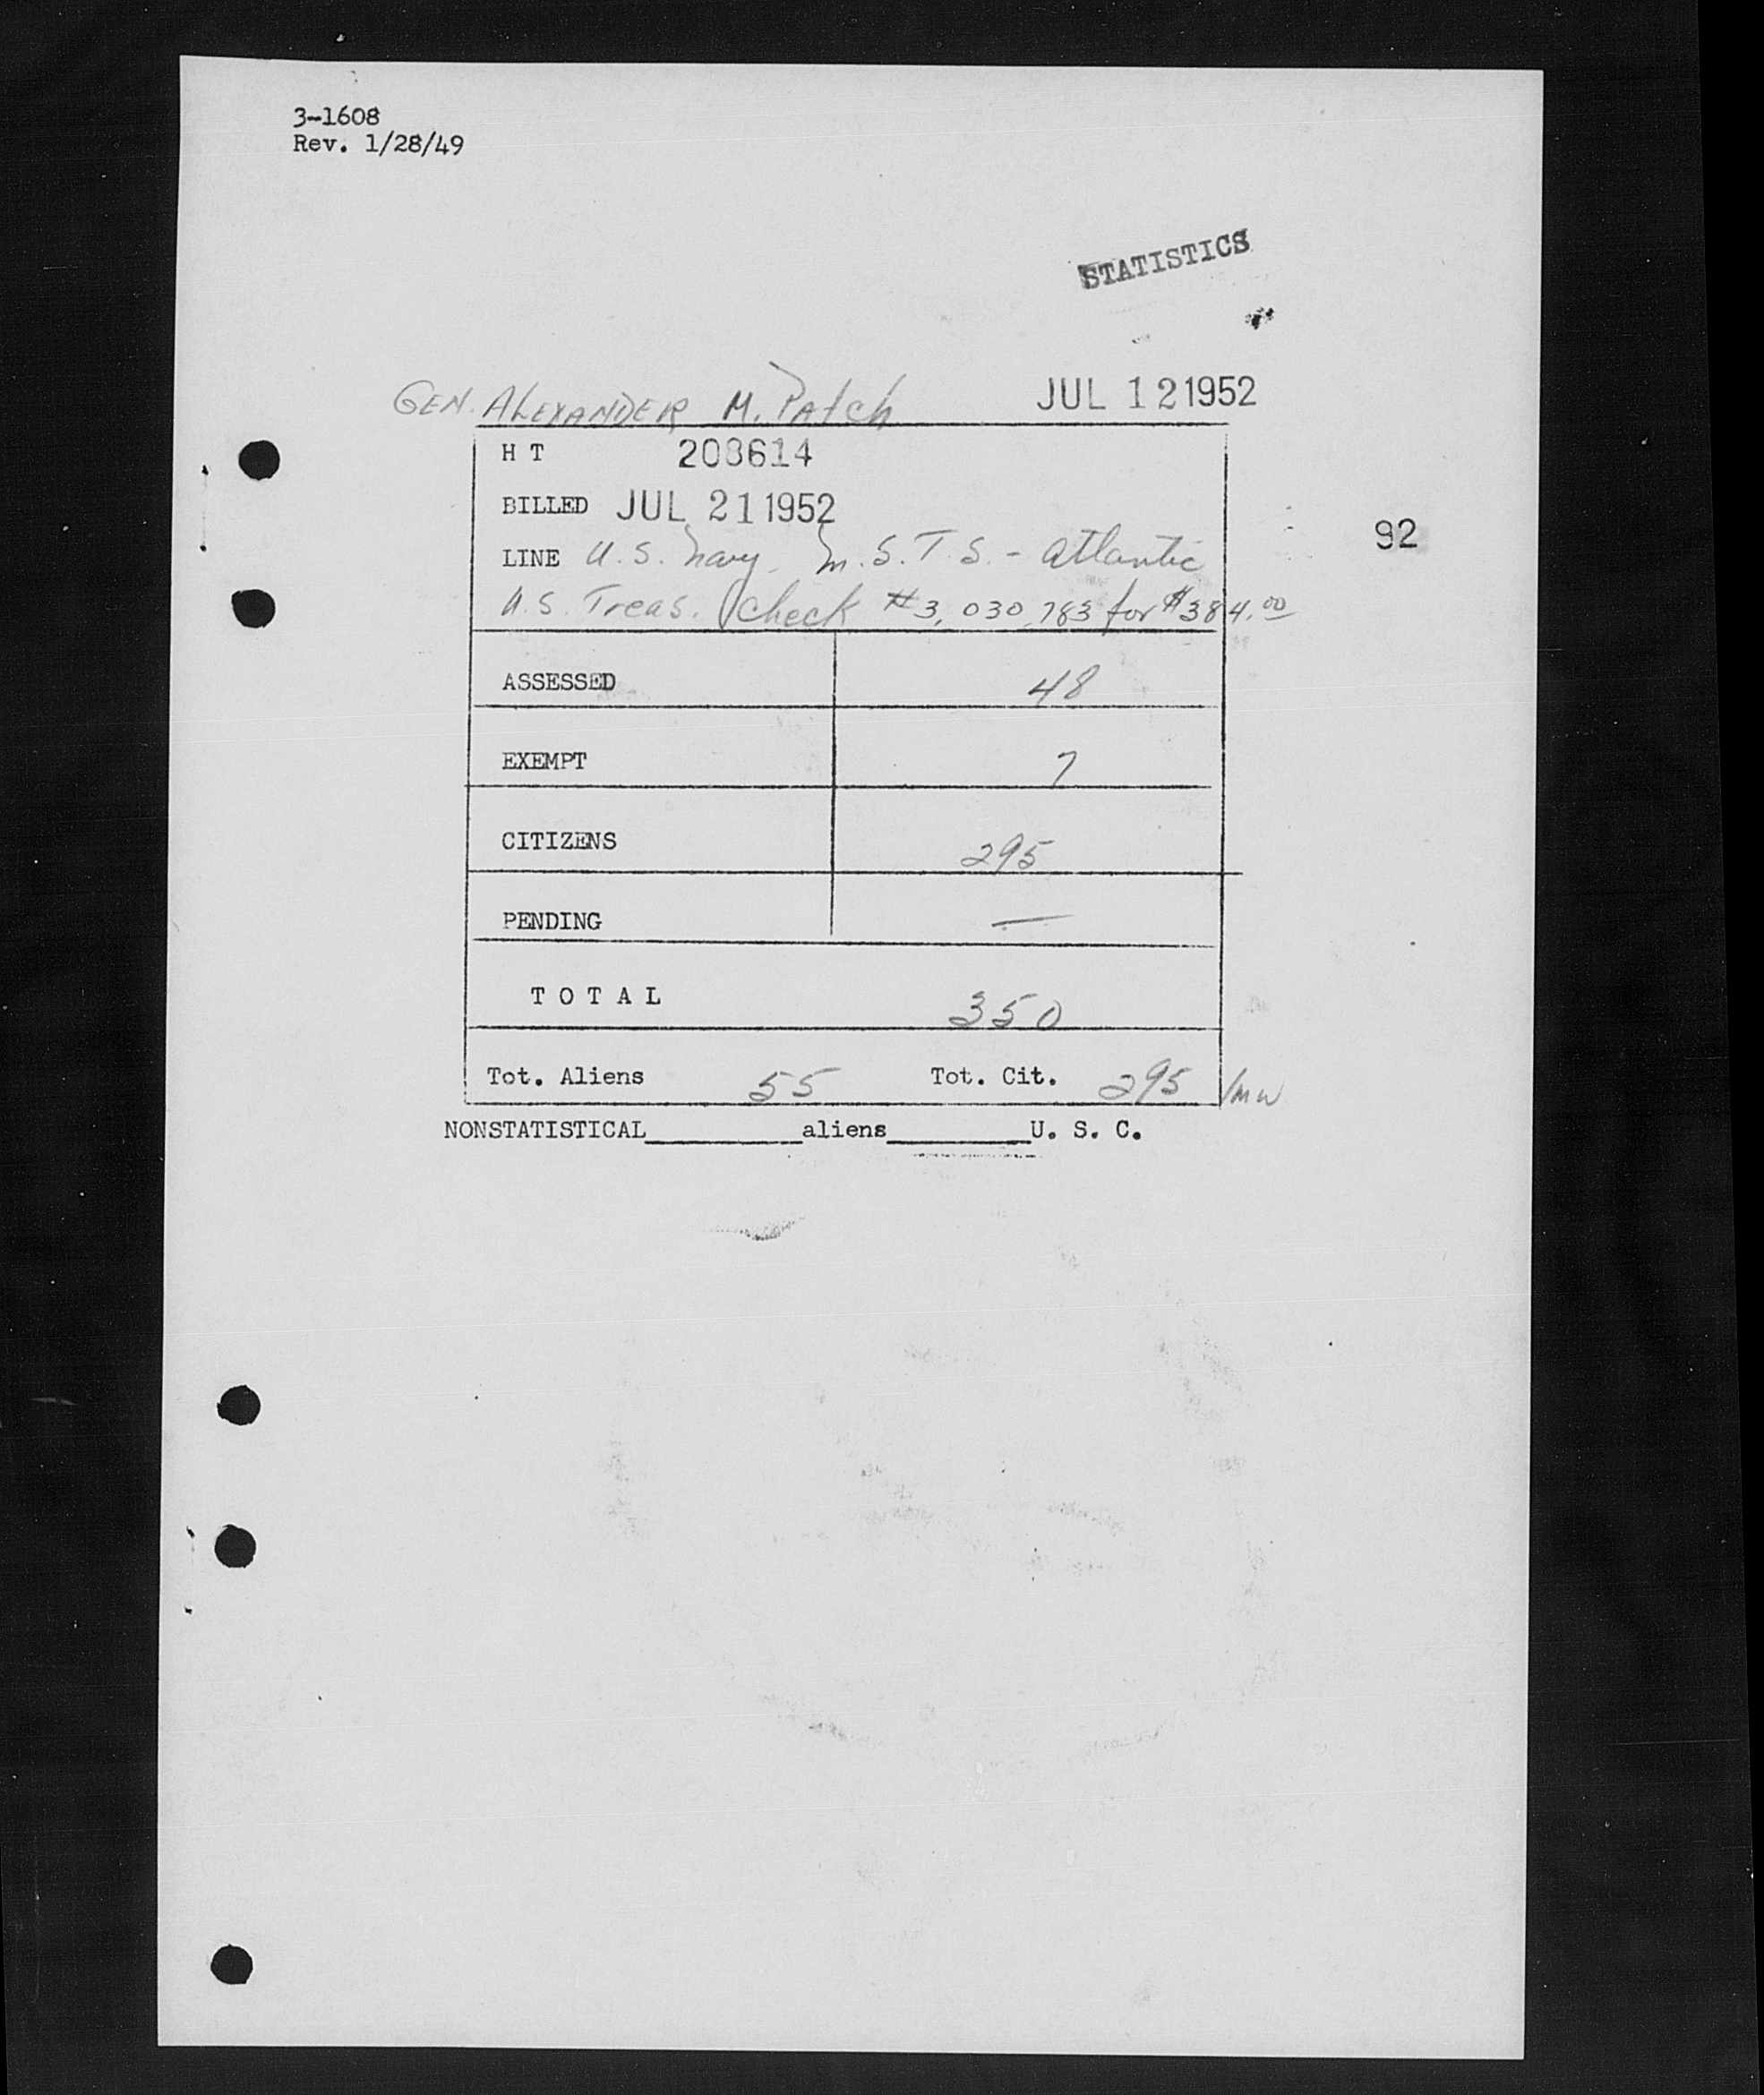 3-1608
Rev. 1/28/49
STATISTICS
GEN. ALEXANDER M. PATCH JUL 12 1952
H T 208614
BILLED JUL 21 1952
92
LINE U.S. Navy M.S.T.S. - Atlantic
U.S. Treas. Check #3,030,783 for $384.00
ASSESSED 48
EXEMPT 7
CITIZENS 295
PENDING —
T O T A L 350
Tot. Aliens 55 Tot. Cit. 295 /mw
NONSTATISTICAL__________aliens__________U. S. C.